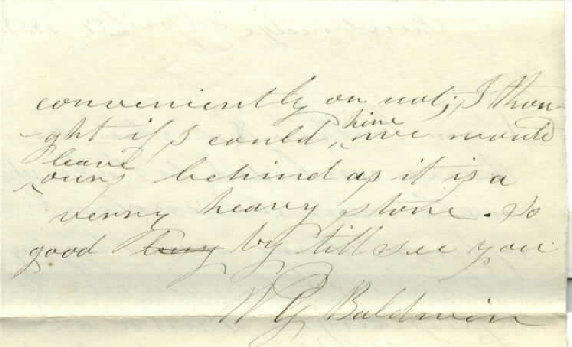 conveniently or not; I thou-
-ght if I could, hire we would
leave ours behind as it is a
verry heavy stove. So
good buy by till see you
W G Baldwin